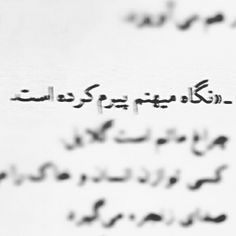 هم می‌آورد
ـ «نگاه میهنم پیرم کرده است.
چراغ ماتم است گلایل
کسی توازن انسان و خاک را
صدای زنجره می‌گیرد